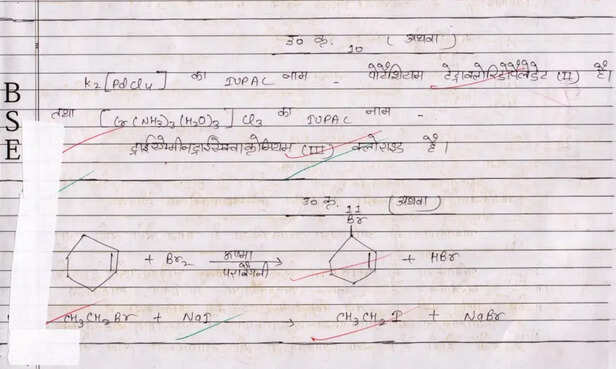 उ० क्र. 10 (अथवा)
K2[PdCl4] का IUPAC नाम - पोटैशियम टेट्राक्लोरिडोपैलेडेट (II) है।
तथा [Cr(NH3)3(H2O)3]Cl3 का IUPAC नाम -
ट्राईऐमीनट्राईऐक्वाक्रोमियम (III) क्लोराइड है।
उ० क्र. 11 (अथवा)
Br
+ Br2 ऊष्मा → + HBr
पराबैंगनी
CH3CH2Br + NaI → CH3CH2I + NaBr
B
S
E